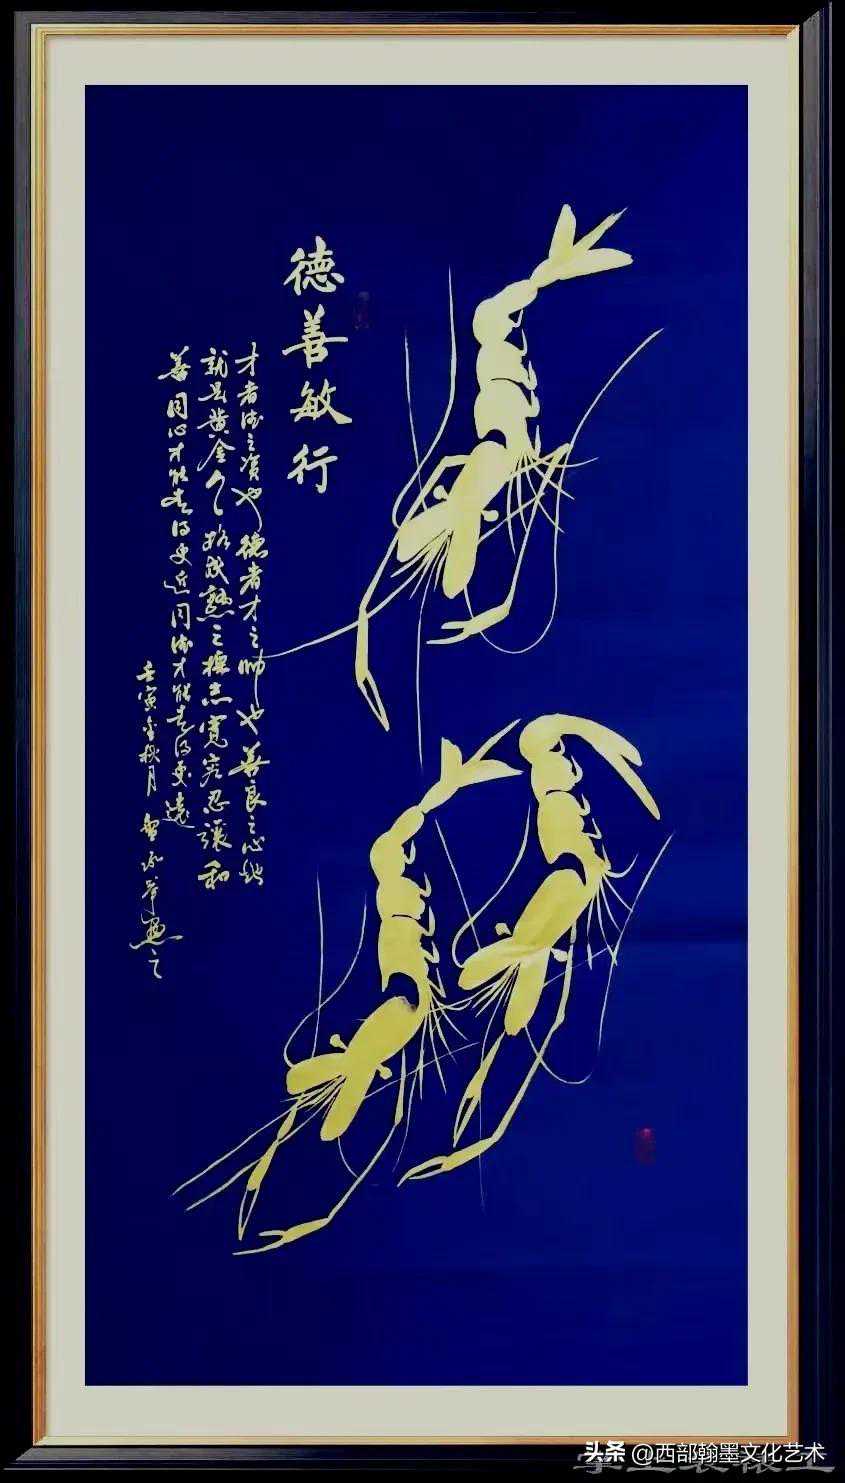 德善敏行
才者德之资也德者才之帅也善良之心地
就是黄金人格成熟之標志寬容忍讓和
善同心才能走得更近同德才能走得更遠
壬寅金秋月
头条 @西部翰墨文化艺术